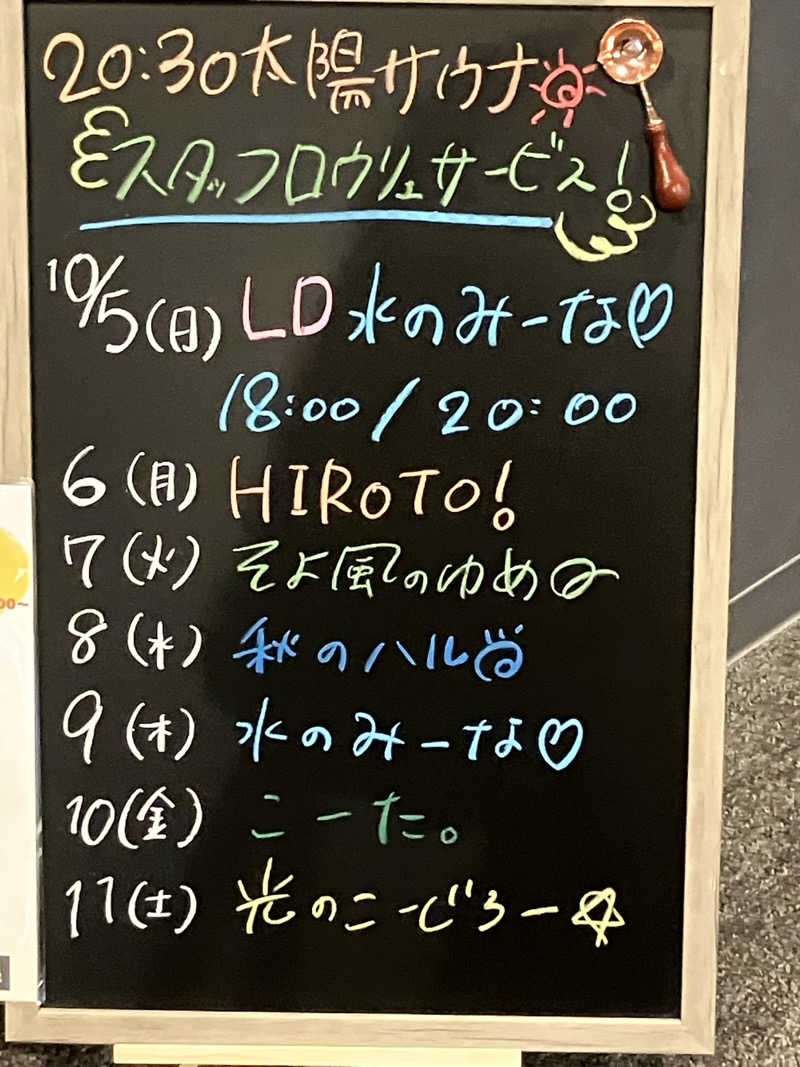 20:30太陽サウナ
スタッフロウリュサービス!
10/5(日) LD 水のみーな♡
18:00 / 20:00
6(月) HIROTO!
7(火) そよ風のゆめ
8(水) 秋のハル
9(木) 水のみーな♡
10(金) こーた。
11(土) 光のこーじろー☆
00~